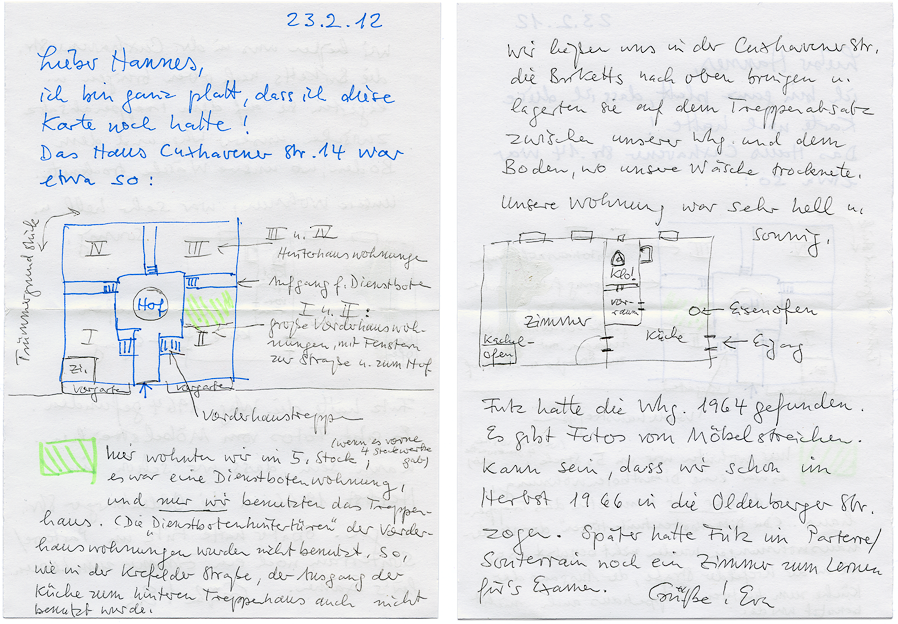 23.2.12
Lieber Hannes,
ich bin ganz platt, dass ich diese
Karte noch hatte!
Das Haus Cuxhavener Str. 14 war
etwa so:
Trümmergrundstück
IV
III
III u. IV
Hinterhauswohnungen
Aufgang f. Dienstboten
Hof
I
II
I u. II:
große Vorderhauswoh-
nungen, mit Fenstern
zur Straße u. zum Hof
Zi.
Vorgarten
Vorgarten
Vorderhaustreppe
(wenn es vorne
4 Stockwerke
gab)
hier wohnten wir im 5. Stock,
es war eine Dienstbotenwohnung,
und nur wir benutzten das Treppen-
haus. (Die "Dienstbotenhintertüren" der Vorder-
hauswohnungen wurden nicht benutzt. So,
wie in der Krefelder Straße, der Ausgang der
Küche zum hinteren Treppenhaus auch nicht
benutzt wurde.
Wir ließen uns in der Cuxhavener Str.
die Briketts nach oben bringen u.
lagerten sie auf dem Treppenabsatz
zwischen unserer Whg. und dem
Boden, wo unsere Wäsche trocknete.
Unsere Wohnung war sehr hell u.
sonnig.
Klo!
Vor-
raum
Zimmer
Küche
Eisenofen
Eingang
Kachel-
ofen
Fritz hatte die Whg. 1964 gefunden.
Es gibt Fotos vom Möbelstreichen.
Kann sein, dass wir schon im
Herbst 1966 in die Oldenburger Str.
zogen. Später hatte Fritz im Parterre/
Souterrain noch ein Zimmer zum Lernen
für's Examen. Grüße! Eva